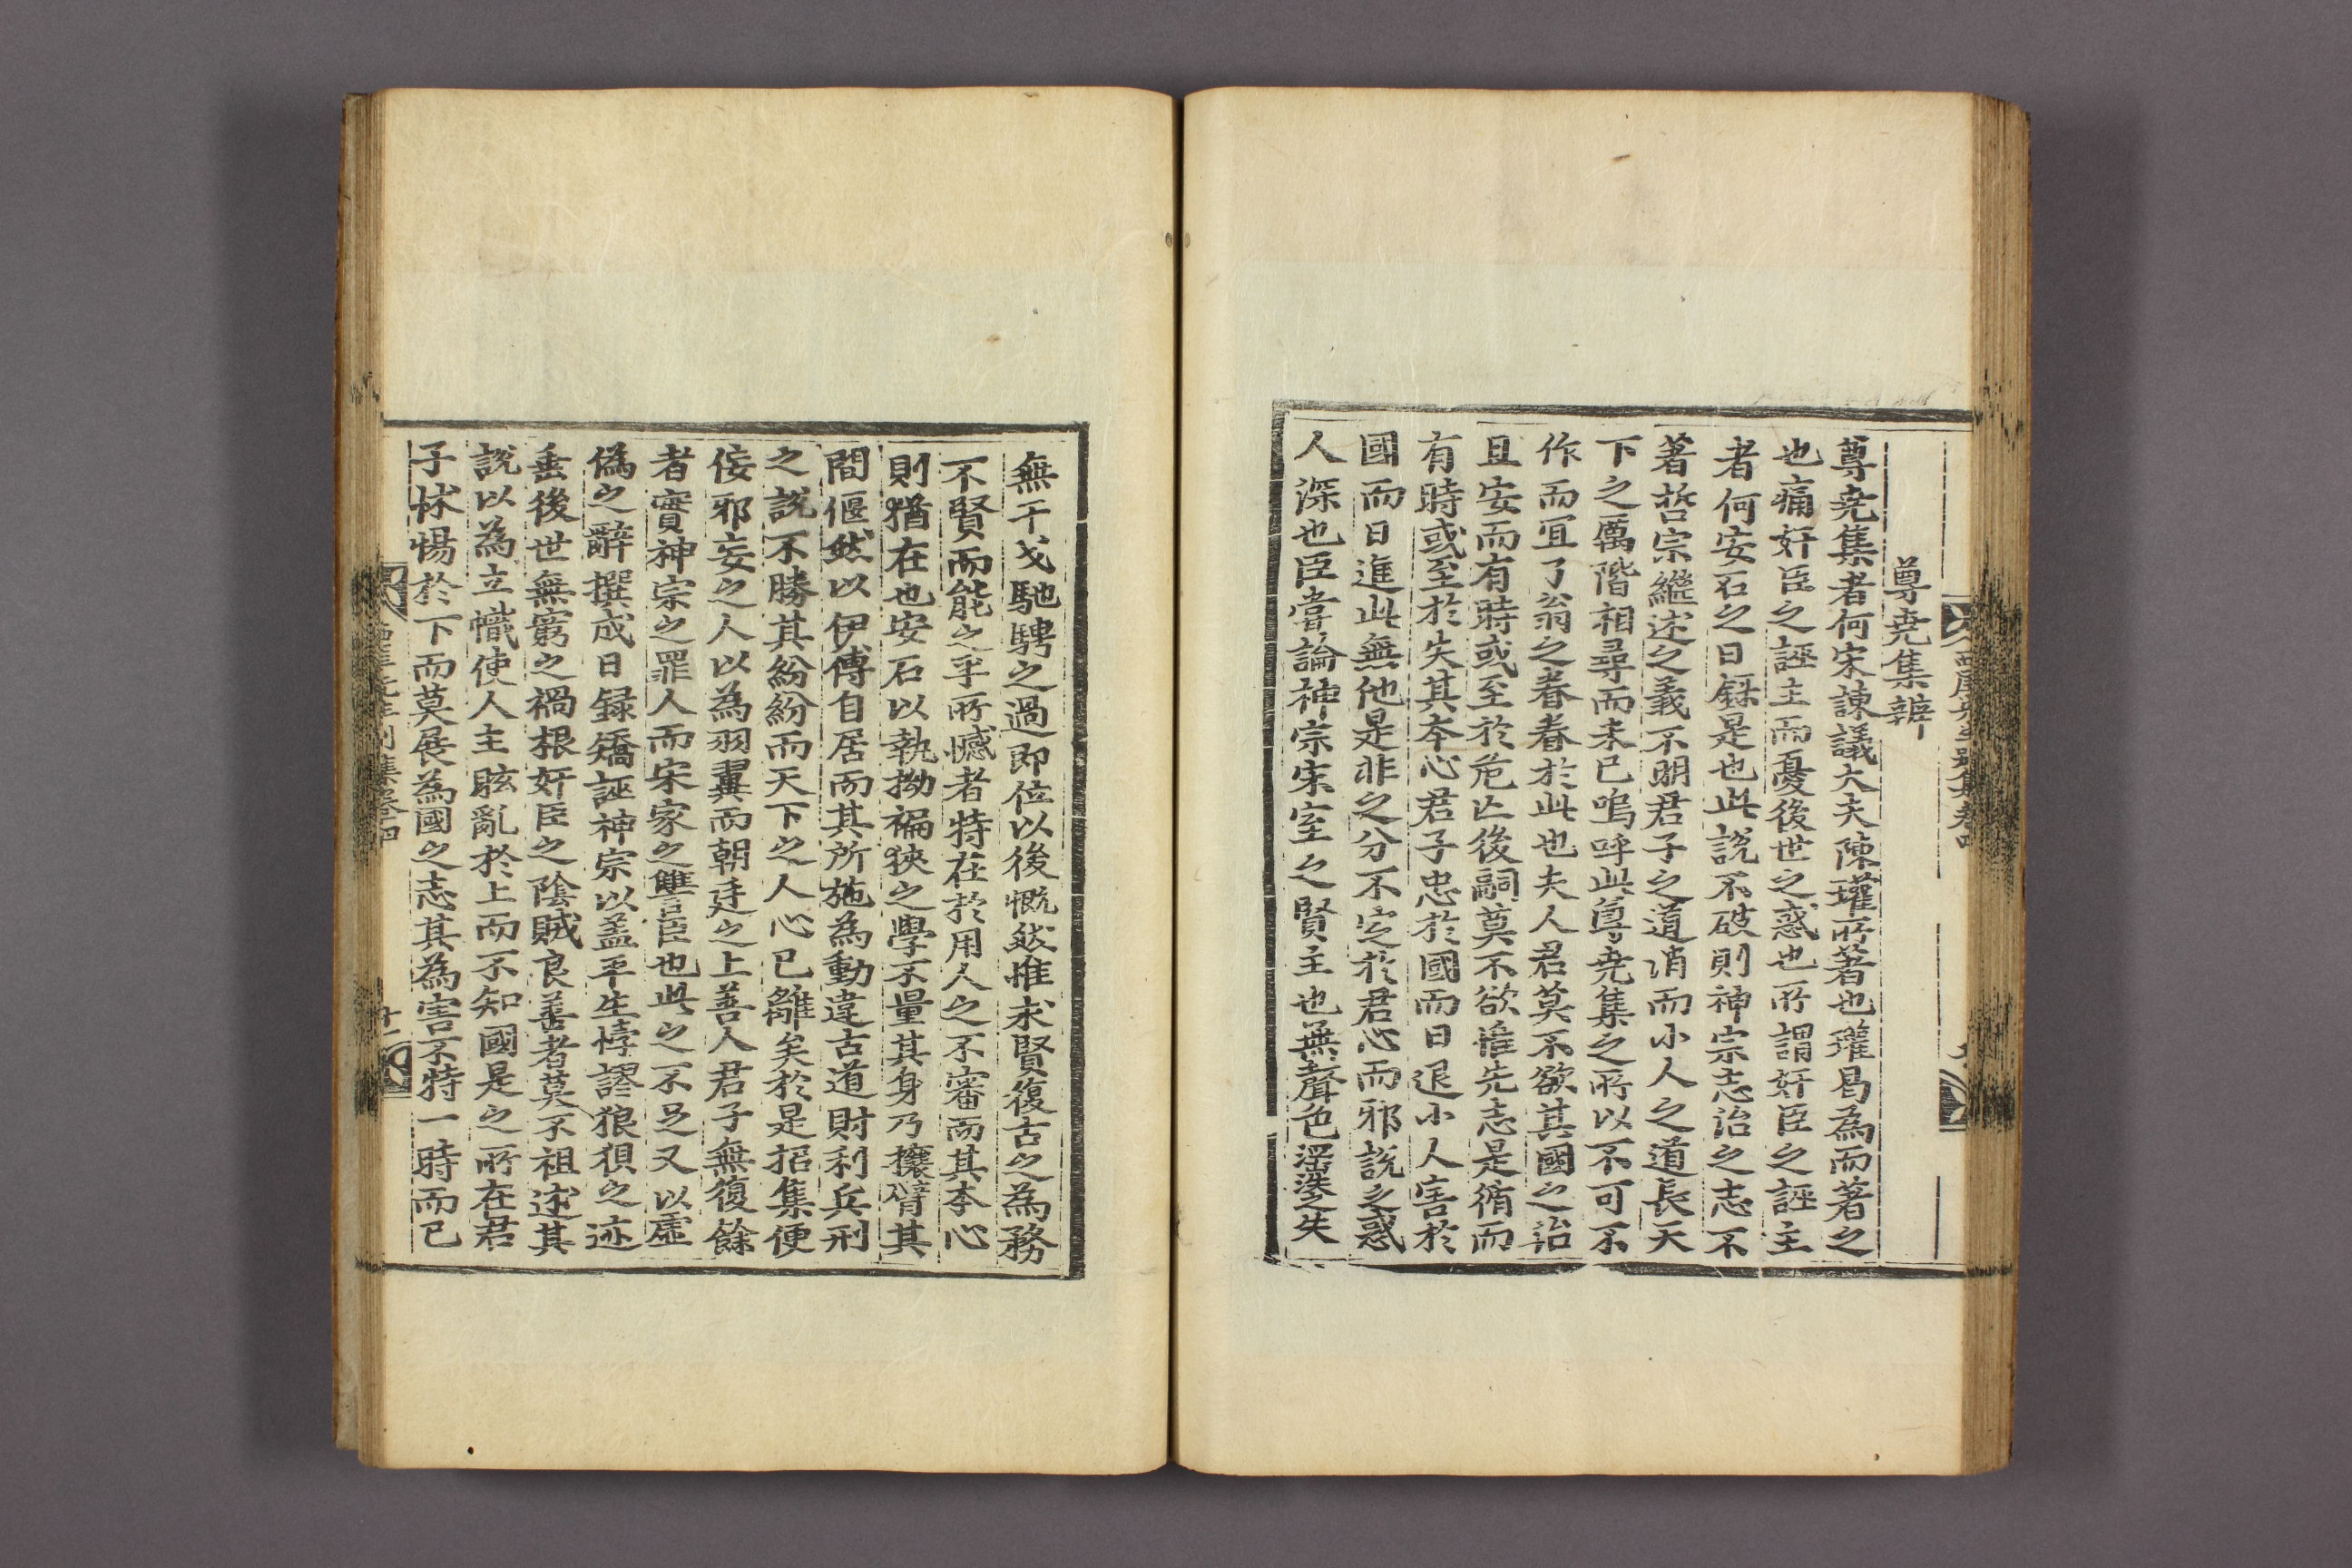 尊堯集辨
尊堯集者何宋諫議大夫陳瓘所著也瓘曷為而著之
也痛奸臣之誣主而憂後世之惑也所謂奸臣之誣主
者何安石之日録是也此說不破則神宗志治之志不
著哲宗繼述之義不明君子之道消而小人之道長天
下之厲階相尋而未已嗚呼此尊堯集之所以不可不
作而宜了翁之眷眷於此也夫人君莫不欲其國之治
且安而有時或至於危亡後嗣莫不欲惟先志是脩而
有時或至於失其本心君子忠於國而日退小人害於
國而日進此無他是非之分不定於君心而邪說之惑
人深也臣嘗論神宗宋室之賢主也無聲色滛逸之失
無干戈馳騁之過即位以後慨然惟求賢復古之為務
不賢而能之乎所憾者特在於用人之不審而其本心
則猶在也安石以執拗褊狹之學不量其身乃攘臂其
間偃然以伊傅自居而其所施為動違古道財利兵刑
之說不勝其紛紛而天下之人心已離矣於是招集便
佞邪妄之人以為羽翼而朝廷之上善人君子無復餘
者實神宗之罪人而宋家之讐臣也此之不足又以虛
偽之辭撰成日録矯誣神宗以盖平生悖謬狼狽之迹
垂後世無窮之禍根奸臣之陰賊良善者莫不祖述其
說以為立幟使人主眩亂於上而不知國是之所在君
子怵惕於下而莫展為國之志其為害不特一時而已